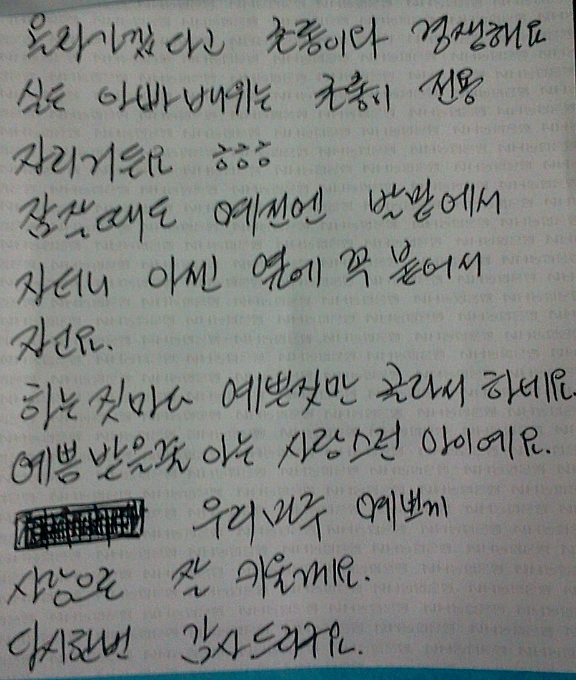 올라가겠다고 초롱이랑 경쟁해요
실은 아빠 배위는 초롱이 전용
자리거든요 ㅎㅎㅎ
잠잘때도 예전엔 발밑에서
자더니 아씬 옆에 꼭 붙어서
자던요.
하는 짓마다 예쁜짓만 골라서 하네요.
예쁨 받을줄 아는 사랑스런 아이에요.
우리 미주 예쁘게
사랑으로 잘 키울께요.
다시한번 감사드리구요.